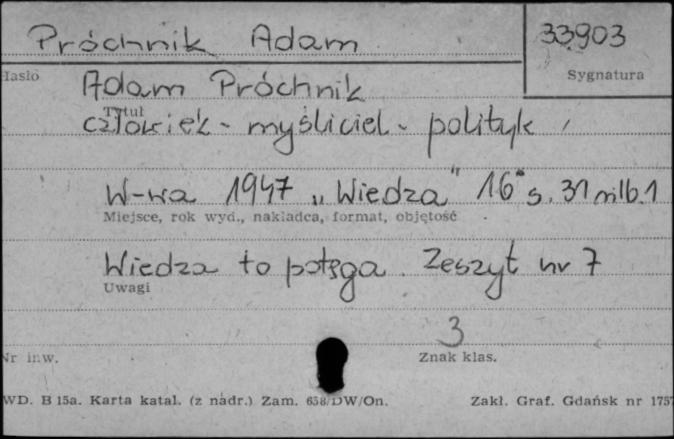 Próchnik Adam 33903
Hasło Sygnatura
Adam Próchnik
Tytuł
człowiek - myśliciel - polityk
W-wa 1947 „Wiedza" 16° s. 31 nlb. 1
Miejsce, rok wyd., nakładca, format, objętość
Wiedza to potęga. Zeszyt nr 7
Uwagi
3
Nr inw. Znak klas.
WD. B 15a. Karta katal. (z nadr.) Zam. 658/DW/On. Zakł. Graf. Gdańsk nr 1757